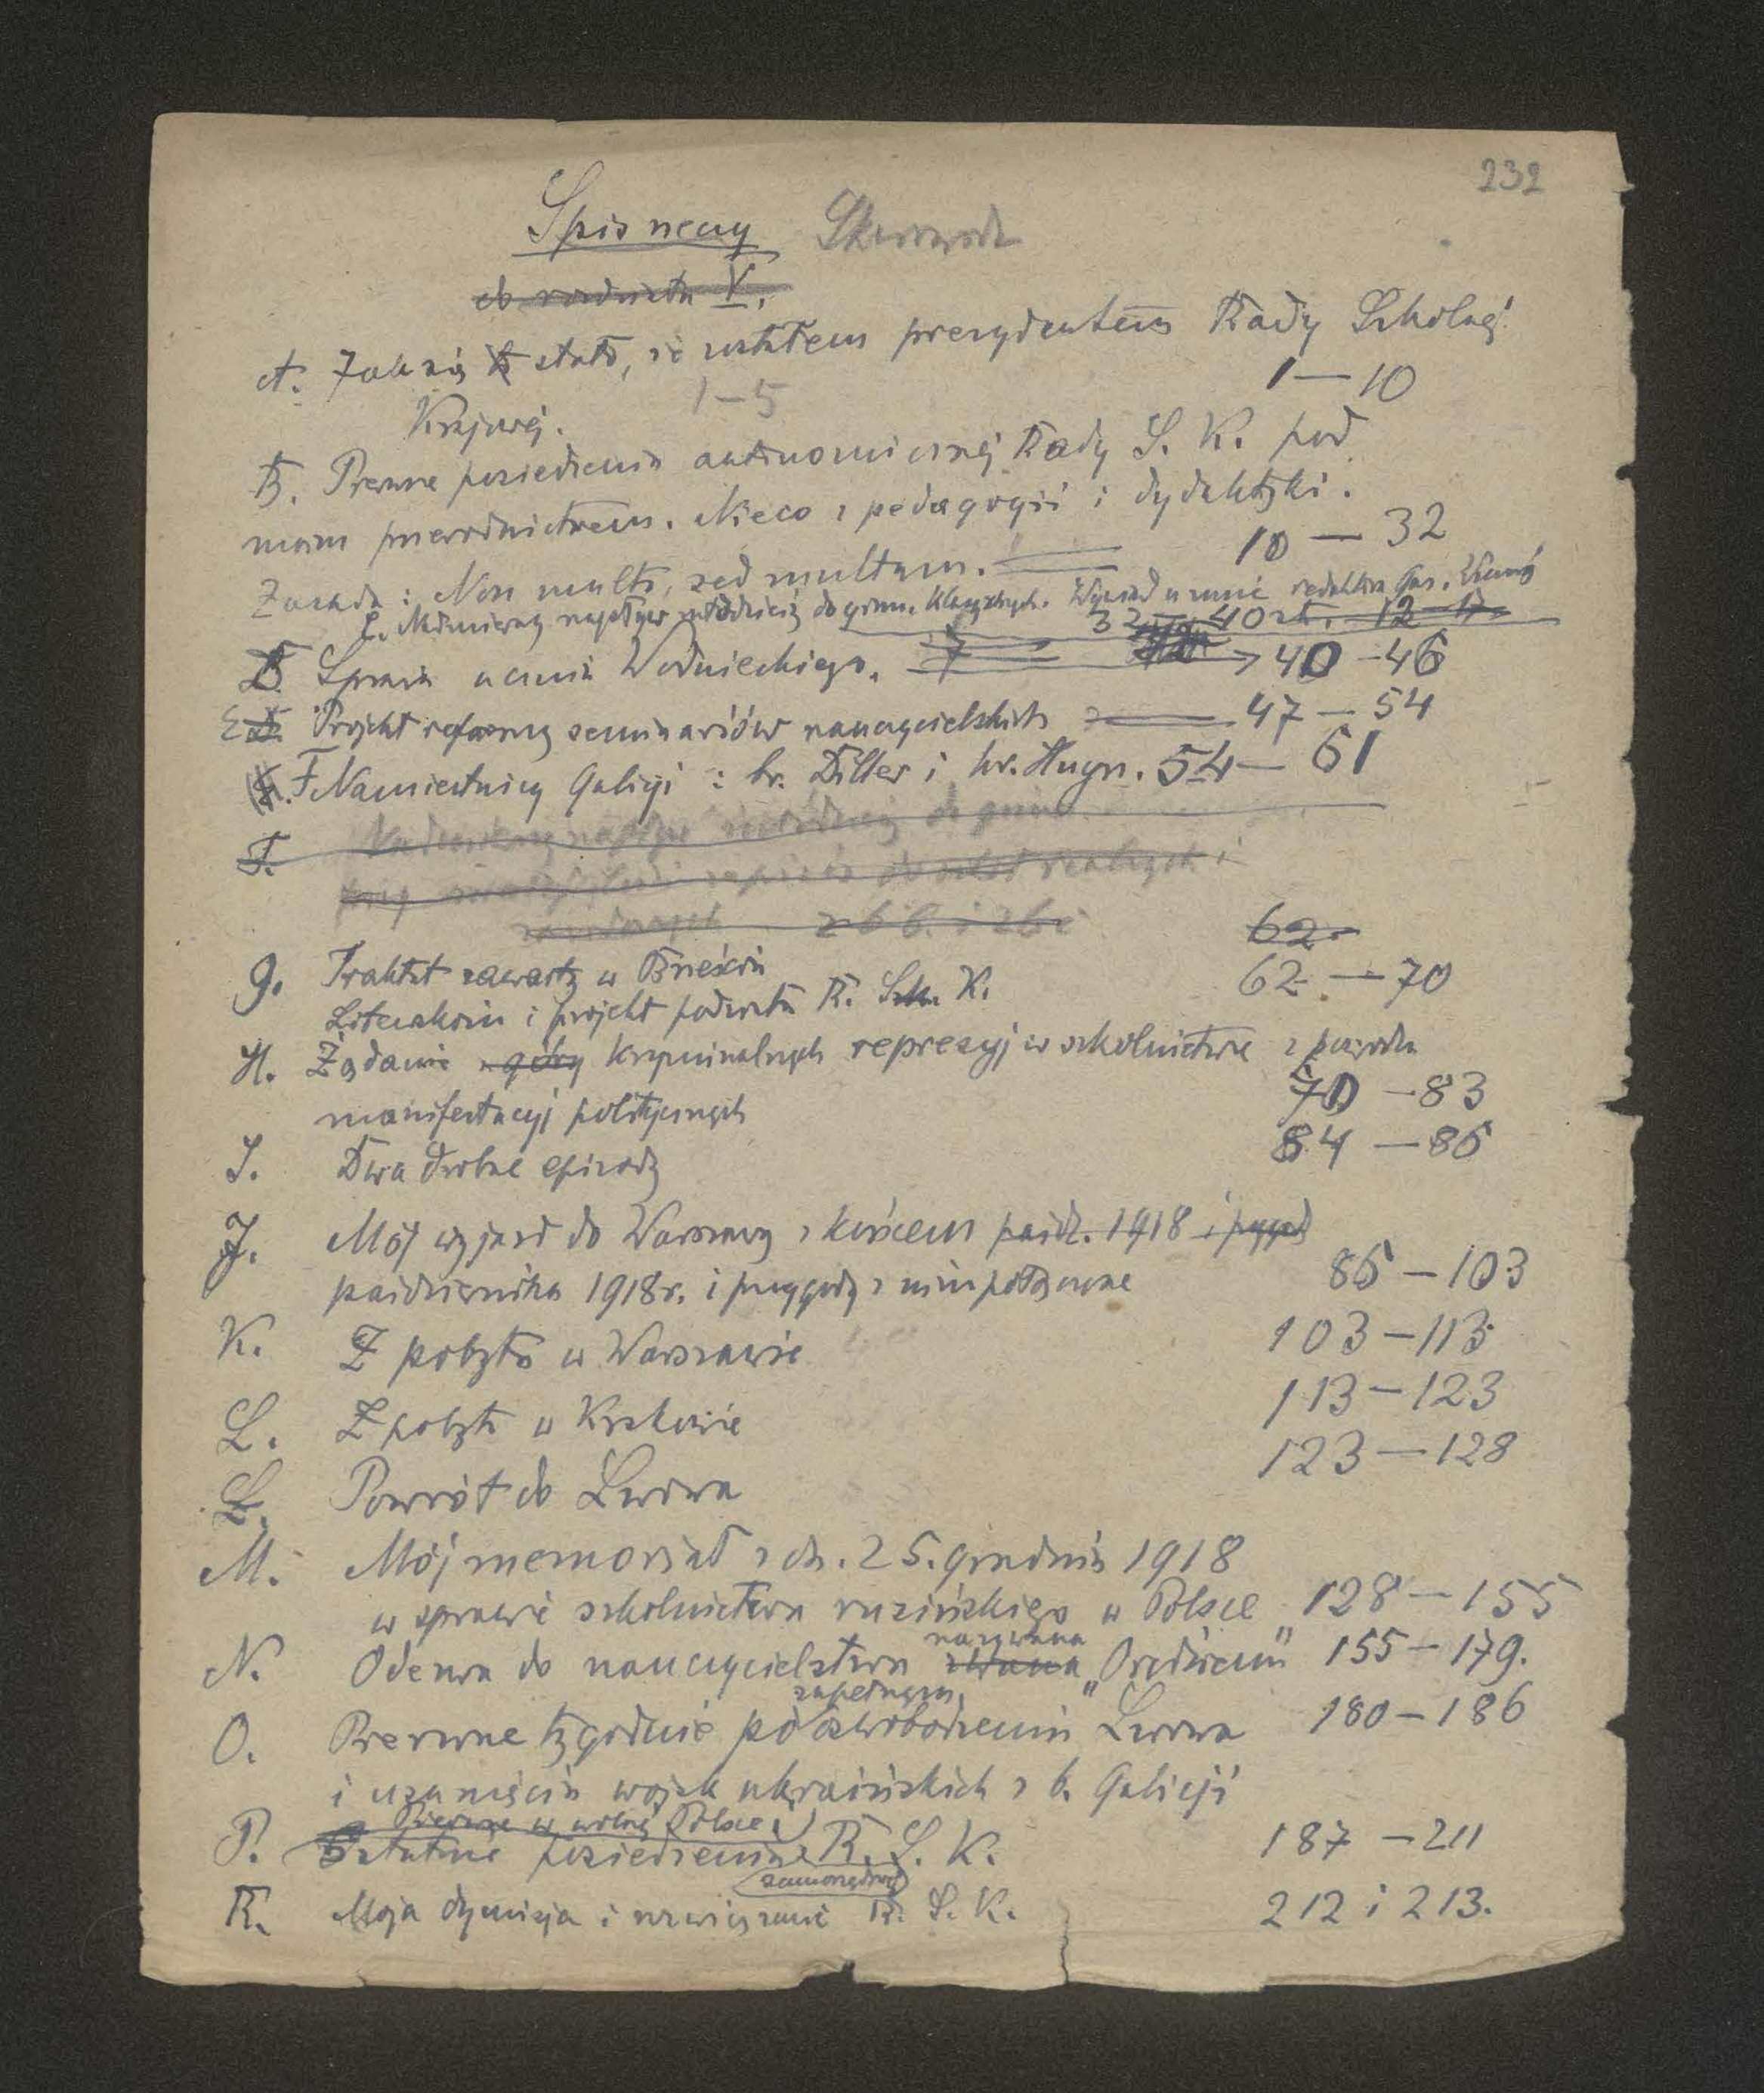 232
Spis rzeczy Skorowidz
do rozdziału V.
A. Jak się to stało, że zostałem prezydentem Rady Szkolnej
1—10
Krajowej. 1—5
B. Pierwsze posiedzenia autonomicznej Rady S. K. pod
moim przewodnictwem. Nieco z pedagogii i dydaktyki.
10 — 32
Zasada: Non multa, sed multum.
C. Nadmierny napływ młodzieży do gimn. klasycznych. Wywiad u mnie redaktora Gaz.
32 — 40 12—17
D. Sprawa ucznia Woźnieckiego. 40 — 46
E. Projekt reformy seminariów nauczycielskich 47 — 54
F. Namiestnicy Galicji: br. Diller i hr. Huyn. 54 — 61
F. Nadmierny napływ młodzieży do gimn.
62
G. Traktat zawarty w Brześciu
62 — 70
Litewskim i projekt podziału R. Szk. K.
H. Żądanie z góry kryminalnych represyj w szkolnictwie z powodu
70 — 83
manifestacyj politycznych
I. Dwa drobne epizody 84 — 86
J. Mój wyjazd do Warszawy z końcem paźdz. 1918 i przygody
października 1918 r. i przygody z nim połączone 86 — 103
K. Z pobytu w Warszawie 103 — 113
L. Z pobytu w Krakowie 113 — 123
Ł. Powrót do Lwowa 123 — 128
M. Mój memoriał z dn. 25. grudnia 1918
w sprawie szkolnictwa rusińskiego w Polsce 128 — 155
nazwana
N. Odezwa do nauczycielstwa zwana „Orędziem" 155 — 179.
zupełnym
O. Pierwsze tygodnie po oswobodzeniu Lwowa 180 — 186
i usunięciu wojsk ukraińskich z b. Galicji
Pierwsze w wolnej Polsce
P. Ostatnie posiedzenie R. S. K. 187 — 211
samorządnej
R. Moja dymisja i rozwiązanie R. S. K. 212 i 213.